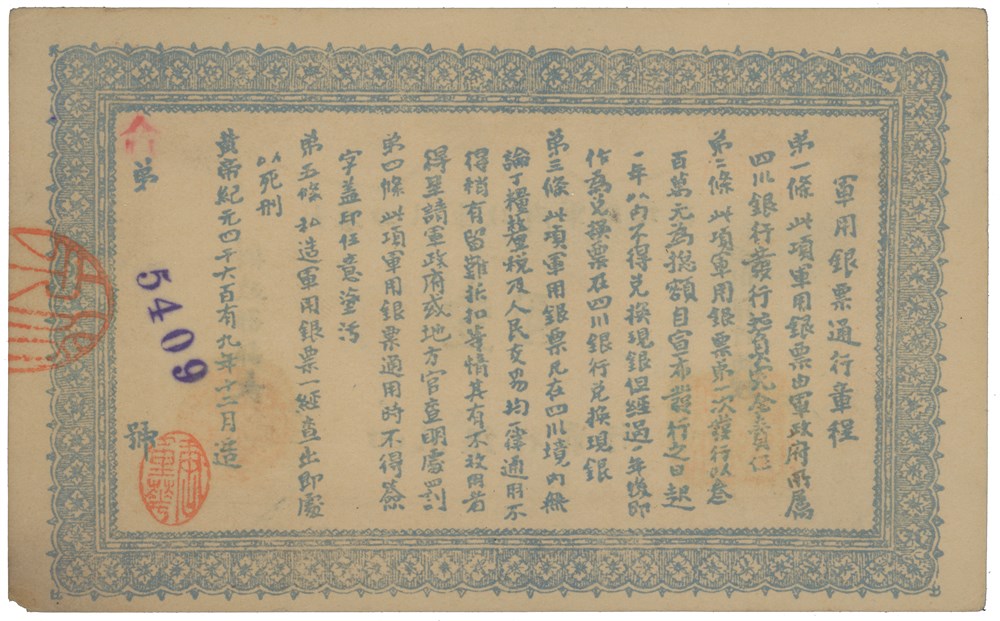 軍用銀票通行章程
第一條 此項軍用銀票由軍政府所屬
四川銀行發行担負完全責任
第二條 此項軍用銀票第一次發行以叁
百萬元為總額自宣布發行之日起
一年以內不得兌換現銀但經過一年後即
作為兌換票在四川銀行兌換現銀
第三條 此項軍用銀票凡在四川境內無
論丁糧釐稅及人民交易均一律通用不
得稍有留難折扣等情其有不收用者
得呈請軍政府或地方官查明處罰
第四條 此項軍用銀票通用時不得簽
字蓋印任意塗污
第五條 私造軍用銀票一經查出即處
以死刑
黃帝紀元四千六百有九年十二月造
第 5409 號